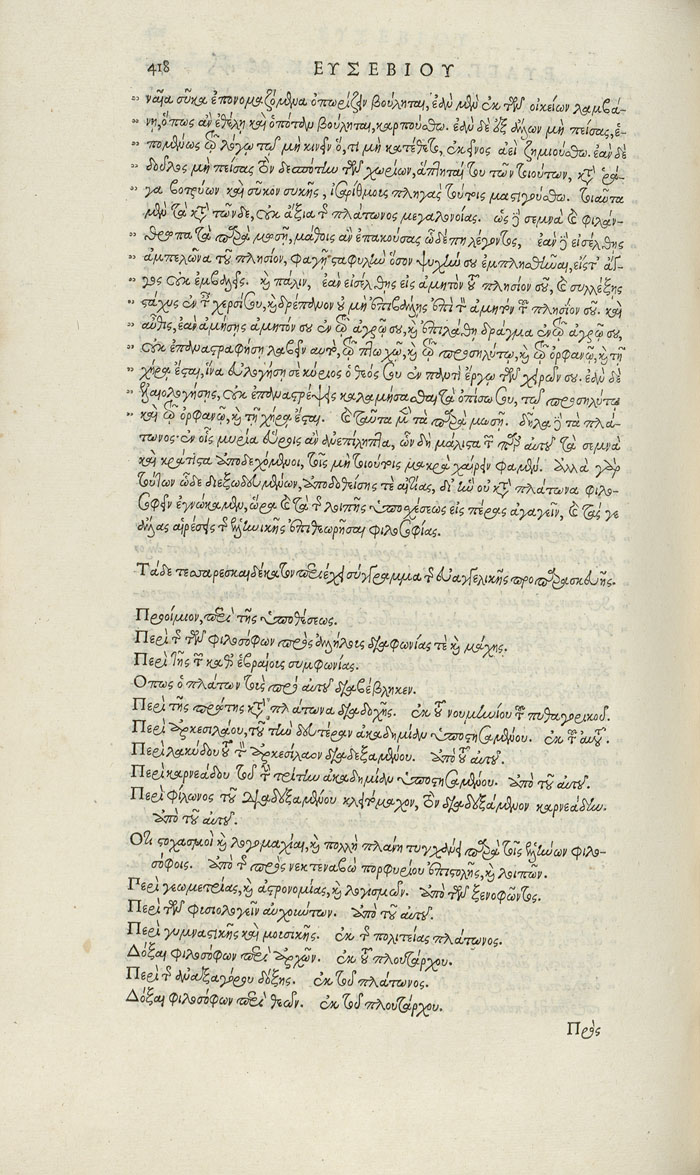 418 ΕΥΣΕΒΙΟΥ
ναῖα σῦκα ἐπονομαζόμενα ὀπωρίζειν βούληται, ἐὰν μὲν ἐκ τῶν οἰκείων λαμβά-
νῃ, ὅπως ἂν ἐθέλῃ καὶ ὁπόταν βούληται, καρπούσθω. ἐὰν δὲ ἐξ ἄλλων μὴ πείσας, ἑ-
πομένως τῷ λόγῳ τῷ μὴ κινεῖν ὅ, τι μὴ κατέθετο, ἐκεῖνος ἀεὶ ζημιούσθω. ἐὰν δὲ
δοῦλος μὴ πείσας τὸν δεσπότην τῶν χωρίων, ἅπτηταί του τῶν τοιούτων, κατὰ ῥᾶ-
γα βοτρύων καὶ σῦκον συκῆς, ἰσαρίθμους πληγὰς τούτοις μαστιγούσθω. τοιαῦτα
μὲν τὰ κατὰ τῶνδε, οὐκ ἄξια τῆς πλάτωνος μεγαλονοίας. ὡς δὲ σεμνὰ καὶ φιλάν-
θρωπα τὰ παρὰ μωσῇ, μάθοις ἂν ἐπακούσας ὧδέ πη λέγοντος, ἐὰν δὲ εἰσέλθῃς
ἀμπελῶνα τοῦ πλησίον, φαγῇ σταφυλὴν ὅσον ψυχήν σου ἐμπλησθῆναι, εἰς δ' ἄγ-
γος οὐκ ἐμβαλεῖς. καὶ πάλιν, ἐὰν εἰσέλθῃς εἰς ἀμητὸν τοῦ πλησίον σου, καὶ συλλέξῃς
στάχυς ἐν ταῖς χερσί σου, καὶ δρέπανον οὐ μὴ ἐπιβάλῃς ἐπὶ τὸν ἀμητὸν τοῦ πλησίον σου. καὶ
αὖθις, ἐὰν ἀμήσῃς ἀμητόν σου ἐν τῷ ἀγρῷ σου, καὶ ἐπιλάθῃ δράγμα ἐν τῷ ἀγρῷ σου,
οὐκ ἐπαναστραφήσῃ λαβεῖν αυτὸ, τῷ πτωχῷ, καὶ τῷ προσηλύτῳ, καὶ τῷ ὀρφανῷ, καὶ τῇ
χήρᾳ ἔσται, ἵνα εὐλογήσῃ σε κύριος ὁ θεός σου ἐν παντὶ ἔργῳ τῶν χειρῶν σου. ἐὰν δὲ
ἐλαιολογήσῃς, οὐκ ἐπαναστρέψεις καλαμήσασθαι τὰ ὀπίσω σου, τῷ προσηλύτῳ
καὶ τῷ ὀρφανῷ, καὶ τῇ χήρᾳ ἔσται. καὶ ταῦτα μὲν τὰ παρὰ μωσῇ. δῆλα δὲ τὰ πλά-
τωνος· ἐν οἷς μυρία εὕροις ἂν ἀνεπίληπτα, ὧν δὴ μάλιστα τῶν παρ' αυτοῦ τὰ σεμνὰ
καὶ κράτιστα ἀποδεχόμενοι, τοῖς μὴ τοιούτοις μακρὰ χαίρειν φαμέν. ἀλλὰ γὰρ
τούτων ὧδε διεξωδευμένων, ἀποδοθείσης τε αἰτίας, δι' ἣν οὐ κατὰ πλάτωνα φιλο-
σοφεῖν ἐγνώκαμεν, ὥρα καὶ τὰ τῆς λοιπῆς ὑποσχέσεως εἰς πέρας ἀγαγεῖν, καὶ τάς γε
ἄλλας αἱρέσεις τῆς ἑλληνικῆς ἐπιθεωρῆσαι φιλοσοφίας.
Τάδε τεσσαρεσκαιδέκατον περιέχει σύγγραμμα τῆς εὐαγγελικῆς προπαρασκευῆς.
Προοίμιον, περὶ τῆς ὑποθέσεως.
Περὶ τῆς τῶν φιλοσόφων πρὸς ἀλλήλους διαφωνίας τὲ καὶ μάχης.
Περὶ τῆς τῶν καθ' ἑβραίοις συμφωνίας.
Οπως ὁ πλάτων τοὺς πρὸ αυτοῦ διαβέβληκεν.
Περὶ τῆς πρώτης κατὰ πλάτωνα διαδοχῆς. ἐκ τοῦ νουμηνίου τοῦ πυθαγορικοῦ.
Περὶ ἀρκεσιλάου, τοῦ τὴν δευτέραν ἀκαδημίαν ὑποστησαμένου. ἐκ τοῦ αυτοῦ.
Περὶ λακύδου τοῦ τὸν ἀρκεσίλαον διαδεξαμένου. ἀπὸ τοῦ αυτοῦ.
Περὶ καρνεάδου τοῦ τὴν τρίτην ἀκαδημίαν ὑποστησαμένου. ἀπὸ τοῦ αυτοῦ.
Περὶ φίλωνος τοῦ διαδεξαμένου κλειτόμαχον, τὸν διαδεξάμενον καρνεάδην.
ἀπὸ τοῦ αυτοῦ.
Οτι στοχασμοὶ καὶ λογομαχίαι, καὶ πολλὴ πλάνη τυγχάνει παρὰ τοῖς ἑλλήνων φιλο-
σόφοις. ἀπὸ τῆς πρὸς νεκτεναβὼ πορφυρίου ἐπιστολῆς, καὶ λοιπῶν.
Περὶ γεωμετρίας, καὶ ἀστρονομίας, καὶ λογισμῶν. ἀπὸ τῶν ξενοφῶντος.
Περὶ τῶν φυσιολογεῖν αυχούντων. ἀπὸ τοῦ αυτοῦ.
Περὶ γυμναστικῆς καὶ μουσικῆς. ἐκ τῆς πολιτείας πλάτωνος.
Δόξαι φιλοσόφων περὶ ἀρχῶν. ἐκ τοῦ πλουτάρχου.
Περὶ τῆς ἀναξαγόρου δόξης. ἐκ τοῦ πλάτωνος.
Δόξαι φιλοσόφων περὶ θεῶν. ἐκ τοῦ πλουτάρχου.
Πρὸς